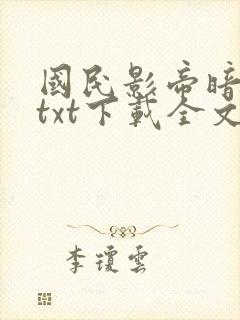 國民影帝暗
txt下載全文
李瓊雲